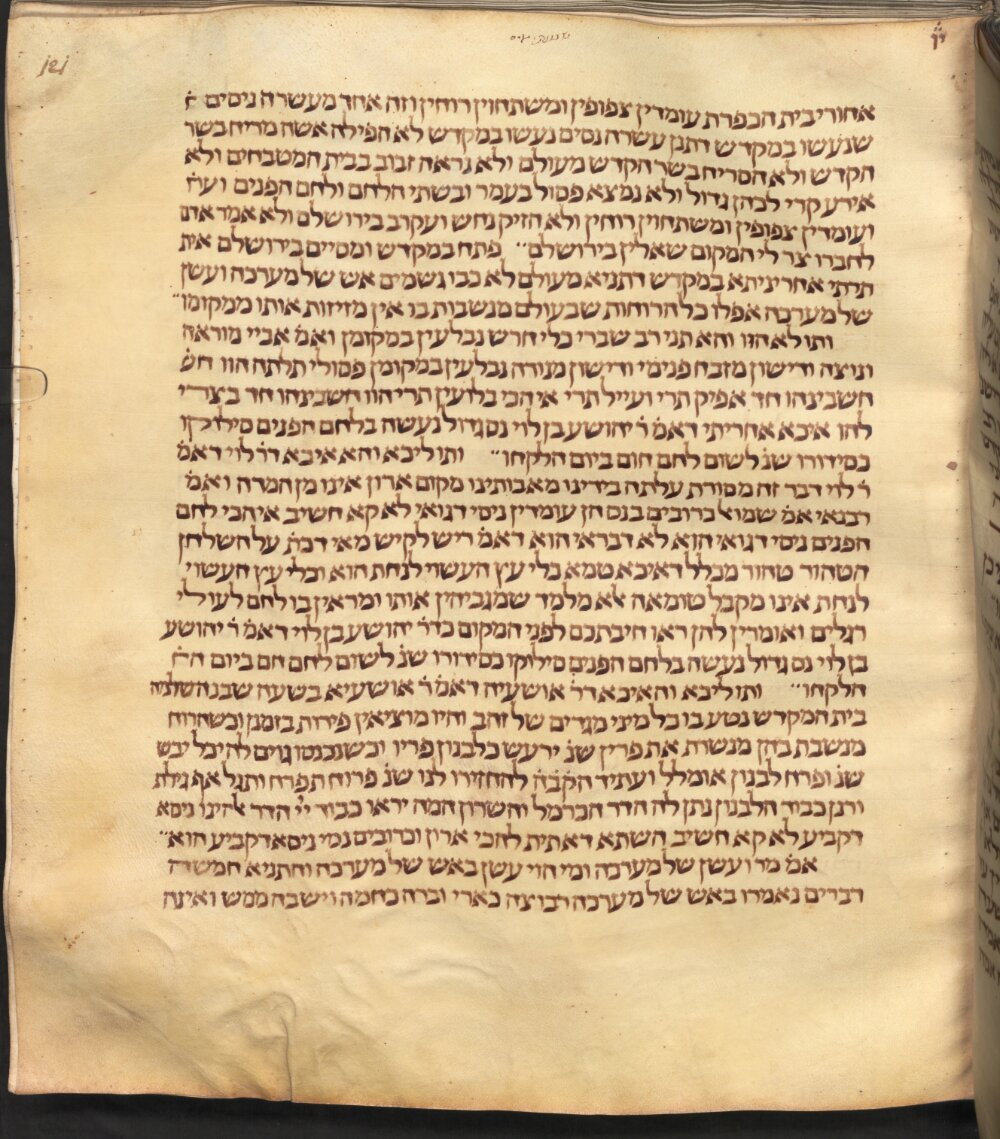 אחורי בית הכפרת עומדין צפופין ומשתחוין רוחין וזה אחד מעשרה ניסים
שנעשו במקדש דתנן עשרה נסים נעשו במקדש לא הפילה אשה מריח בשר
הקדש ולא הסריח בשר הקדש מעולם ולא נראה זבוב בבית המטבחים ולא
אירע קרי לכהן גדול ולא נמצא פסול בעמר ובשתי הלחם ולחם הפנים
ועומדין צפופין ומשתחוין רוחין ולא הזיק נחש ועקרב בירושלם ולא אמר אדם
לחברו צר לי המקום שאלין בירושלם״ פתח במקדש ומסיים בירושלם אית
תרתי אחריניתא במקדש דתניא מעולם לא כבו גשמים אש של מערכה ועשן
של מערכה אפלו כל הרוחות שבעולם מנשבות בו אין מזיזות אותו ממקומו״
ותו לא הוו והא תני רב שברי כלי חרש נבלעין במקומן ואמ׳ אביי מוראה
ונוצה ודישון מזבח פנימי ודישון מנורה נבלעין במקומן פסולי תלתה הוו
חשבינהו חד אפיק תרי ועייל תרי אי הכי בלועין תרי הוו חשבינהו חד בצרי
להו איכא אחריתי דאמ׳ ר׳ יהושע בן לוי נס גדול נעשה בלחם הפנים סילוקו
כסידורו שנ׳ לשום לחם חום ביום הלקחו״ ותו ליכא והא איכא דר׳ לוי דאמ׳
ר׳ לוי דבר זה מסורת עלתה בידינו מאבותינו מקום ארון אינו מן המדה ואמ׳
רבנאי אמ׳ שמואל כרובים בנס הן עומדין ניסי דגואי לא קא חשיב אי הכי לחם
הפנים ניסי דגואי הוא לא דבראי הוא דאמ׳ ריש לקיש מאי דכת׳ על השלחן
הטהור טהור מכלל דאיכא טמא כלי עץ העשוי לנחת הוא וכלי עץ העשוי
לנחת אינו מקבל טומאה אלא מלמד שמגביהין אותו ומראין בו לחם לעולי
רגלים ואומרין להן ראו חיבתכם לפני המקום כדר׳ יהושע בן לוי דאמ׳ ר׳ יהושע
בן לוי נס גדול נעשה בלחם הפנים סילוקו כסידורו שנ׳ לשום לחם חם ביום
הלקחו״ ותו ליכא והאיכא דר׳ אושעיה דאמ׳ ר׳ אושעיא בשעה שבנה שלמה
בית המקדש נטע בו כל מיני מגדים של זהב והיו מוציאין פירות בזמנן וכשהרוח
מנשבת בהן מנשרות את פריין שנ׳ ירעש כלבנון פריו וכשנכנסו גוים להיכל יבש
שנ׳ ופרח לבנון אומלל ועתיד הקבה להחזירו לנו שנ׳ פרוח תפרח ותגל אף גילת
ורנן כבוד הלבנון נתן לה הדר הכרמל והשרון המה יראו כבוד יי׳ הדר אלהינו ניסא
דקביע לא קא חשיב השתא דאתית להכי ארון וכרובים נמי ניסא דקביע הוא״
אמ׳ מר ועשן של מערכה ומי הוי עשן באש של מערכה והתניא חמשה
דברים נאמרו באש של מערכה רבוצה כארי וברה כחמה וישבה ממש ואינה